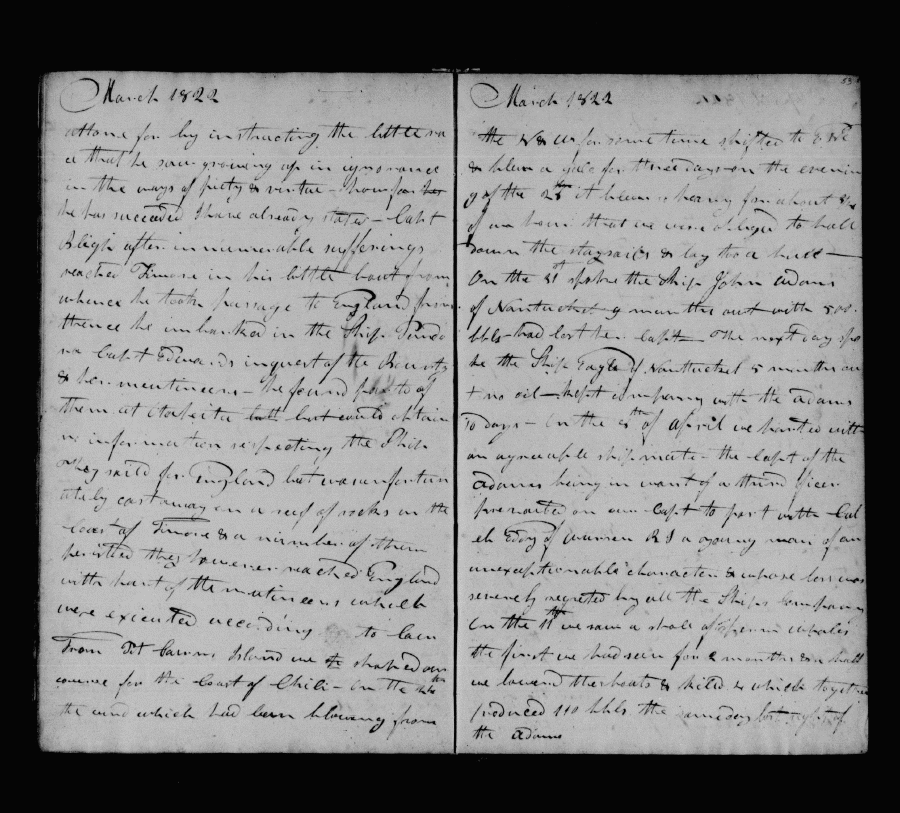 March 1822
attone for by instructing the little ra
ce that he saw growing up in ignorance
in the ways of piety & virtue - how far
he has succeeded I have already stated - Capt
Bligh after innumerable sufferings
reached Timore in his little boat from
whence he took passage to England from
thence he imbarked in the Ship Pando
ra Capt Edwards in quest of the Bounty
& her mutineers - he found part of
them at Otaheite but could obtain
no information respecting the Ship
They saild for England but was unfortun
ately cast away on a reef of rocks on the
Coast of Timore & a number of them
perished they however reached England
with part of the mutineers which
were executed according to Law
From Pit Cairns Island we shaped our
course for the Coast of Chili - on the
the wind which had been blowing from
53
March 1822
the N & W for some time shifted to
& blew a gale for three days on the evenin
g of the 28th it blew so heavy from about
of an hour that we were obliged to hall
down the staysails & lay to a hull
On the 31st spoke the Ship John Adams
of Nantucket 9 months out with 500
bbls - had lost her Capt - The next day spo
ke the Ship Eagle of Nantucket 5 months ou
t no oil - kept company with the Adams
10 days - on the 8th of April we parted with
an agreeable shipmate - the Capt of the
Adams being in want of a third officer
prevailed on our Capt to part with Cal
eb Eddy of Warren R I a young man of an
unexceptionable character & whose loss was
severely regreted by all the Ships Company
On the 11th we saw a shole of Sperm whales
the first we had seen for 2 months & a half
we lowerd the boats & killd 4 which together
produced 110 bbls the same day lost sight of
the Adams